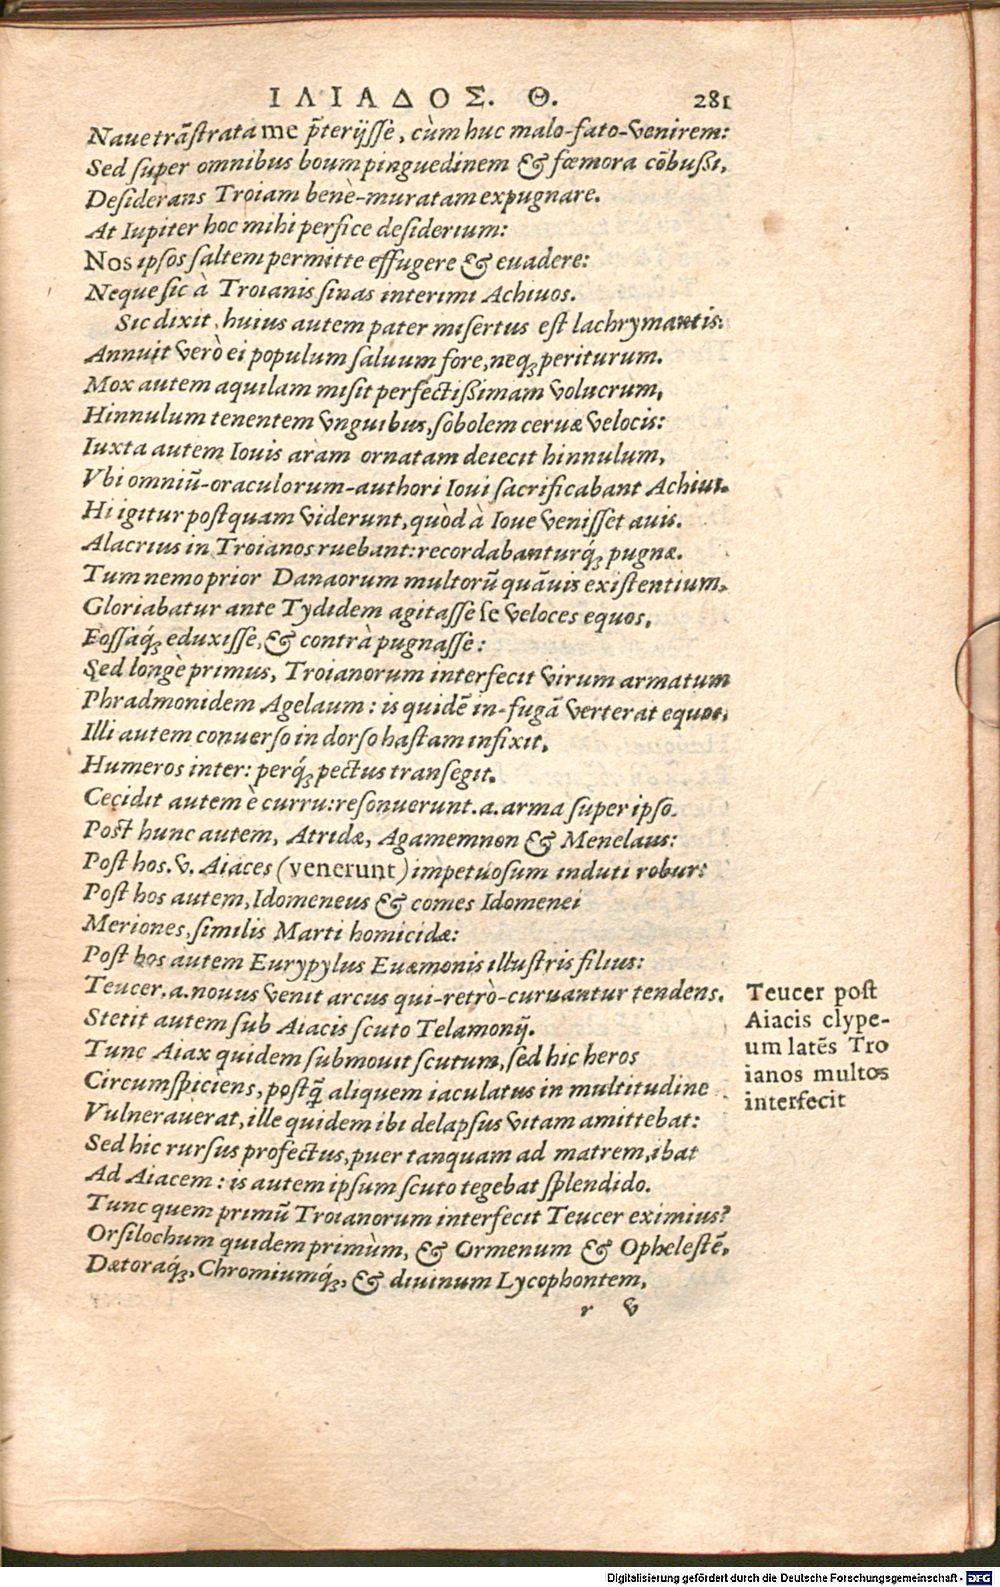 ΙΛΙΑΔΟΣ. Θ. 281
Naue trãstrata me p̃terijsse, cùm huc malo-fato-venirem:
Sed super omnibus boum pinguedinem & fœmora cõbußi,
Desiderans Troiam benè-muratam expugnare.
At Iupiter hoc mihi perfice desiderium:
Nos ipsos saltem permitte effugere & euadere:
Neque sic à Troianis sinas interimi Achiuos.
Sic dixit, huius autem pater misertus est lachrymantis:
Annuit verò ei populum saluum fore, neq; periturum.
Mox autem aquilam misit perfectißimam volucrum,
Hinnulum tenentem vnguibus, sobolem ceruæ velocis:
Iuxta autem Iouis aram ornatam deiecit hinnulum,
Vbi omniũ-oraculorum-authori Ioui sacrificabant Achiui.
Hi igitur postquam viderunt, quòd à Ioue venisset auis.
Alacrius in Troianos ruebant: recordabanturq́; pugnæ.
Tum nemo prior Danaorum multorũ quãuis existentium,
Gloriabatur ante Tydidem agitasse se veloces equos,
Fossaq́; eduxisse, & contrà pugnasse:
Sed longè primus, Troianorum interfecit virum armatum
Phradmonidem Agelaum: is quidẽ in-fugã verterat equos,
Illi autem conuerso in dorso hastam infixit,
Humeros inter: perq́; pectus transegit.
Cecidit autem è curru: resonuerunt .a. arma super ipso.
Post hunc autem, Atridæ, Agamemnon & Menelaus:
Post hos .v. Aiaces (venerunt) impetuosum induti robur:
Post hos autem, Idomeneus & comes Idomenei
Meriones, similis Marti homicidæ:
Post hos autem Eurypylus Euæmonis illustris filius:
Teucer .a. nouus venit arcus qui-retrò-curuantur tendens.
Stetit autem sub Aiacis scuto Telamonij.
Tunc Aiax quidem submouit scutum, sed hic heros
Circumspiciens, postq̃ aliquem iaculatus in multitudine
Vulnerauerat, ille quidem ibi delapsus vitam amittebat:
Sed hic rursus profectus, puer tanquam ad matrem, ibat
Ad Aiacem: is autem ipsum scuto tegebat splendido.
Tunc quem primũ Troianorum interfecit Teucer eximius?
Orsilochum quidem primùm, & Ormenum & Ophelestẽ,
Dætoraq́;, Chromiumq́;, & diuinum Lycophontem,
r v
Teucer post
Aiacis clype-
um latẽs Tro
ianos multos
interfecit
Digitalisierung gefördert durch die Deutsche Forschungsgemeinschaft - DFG